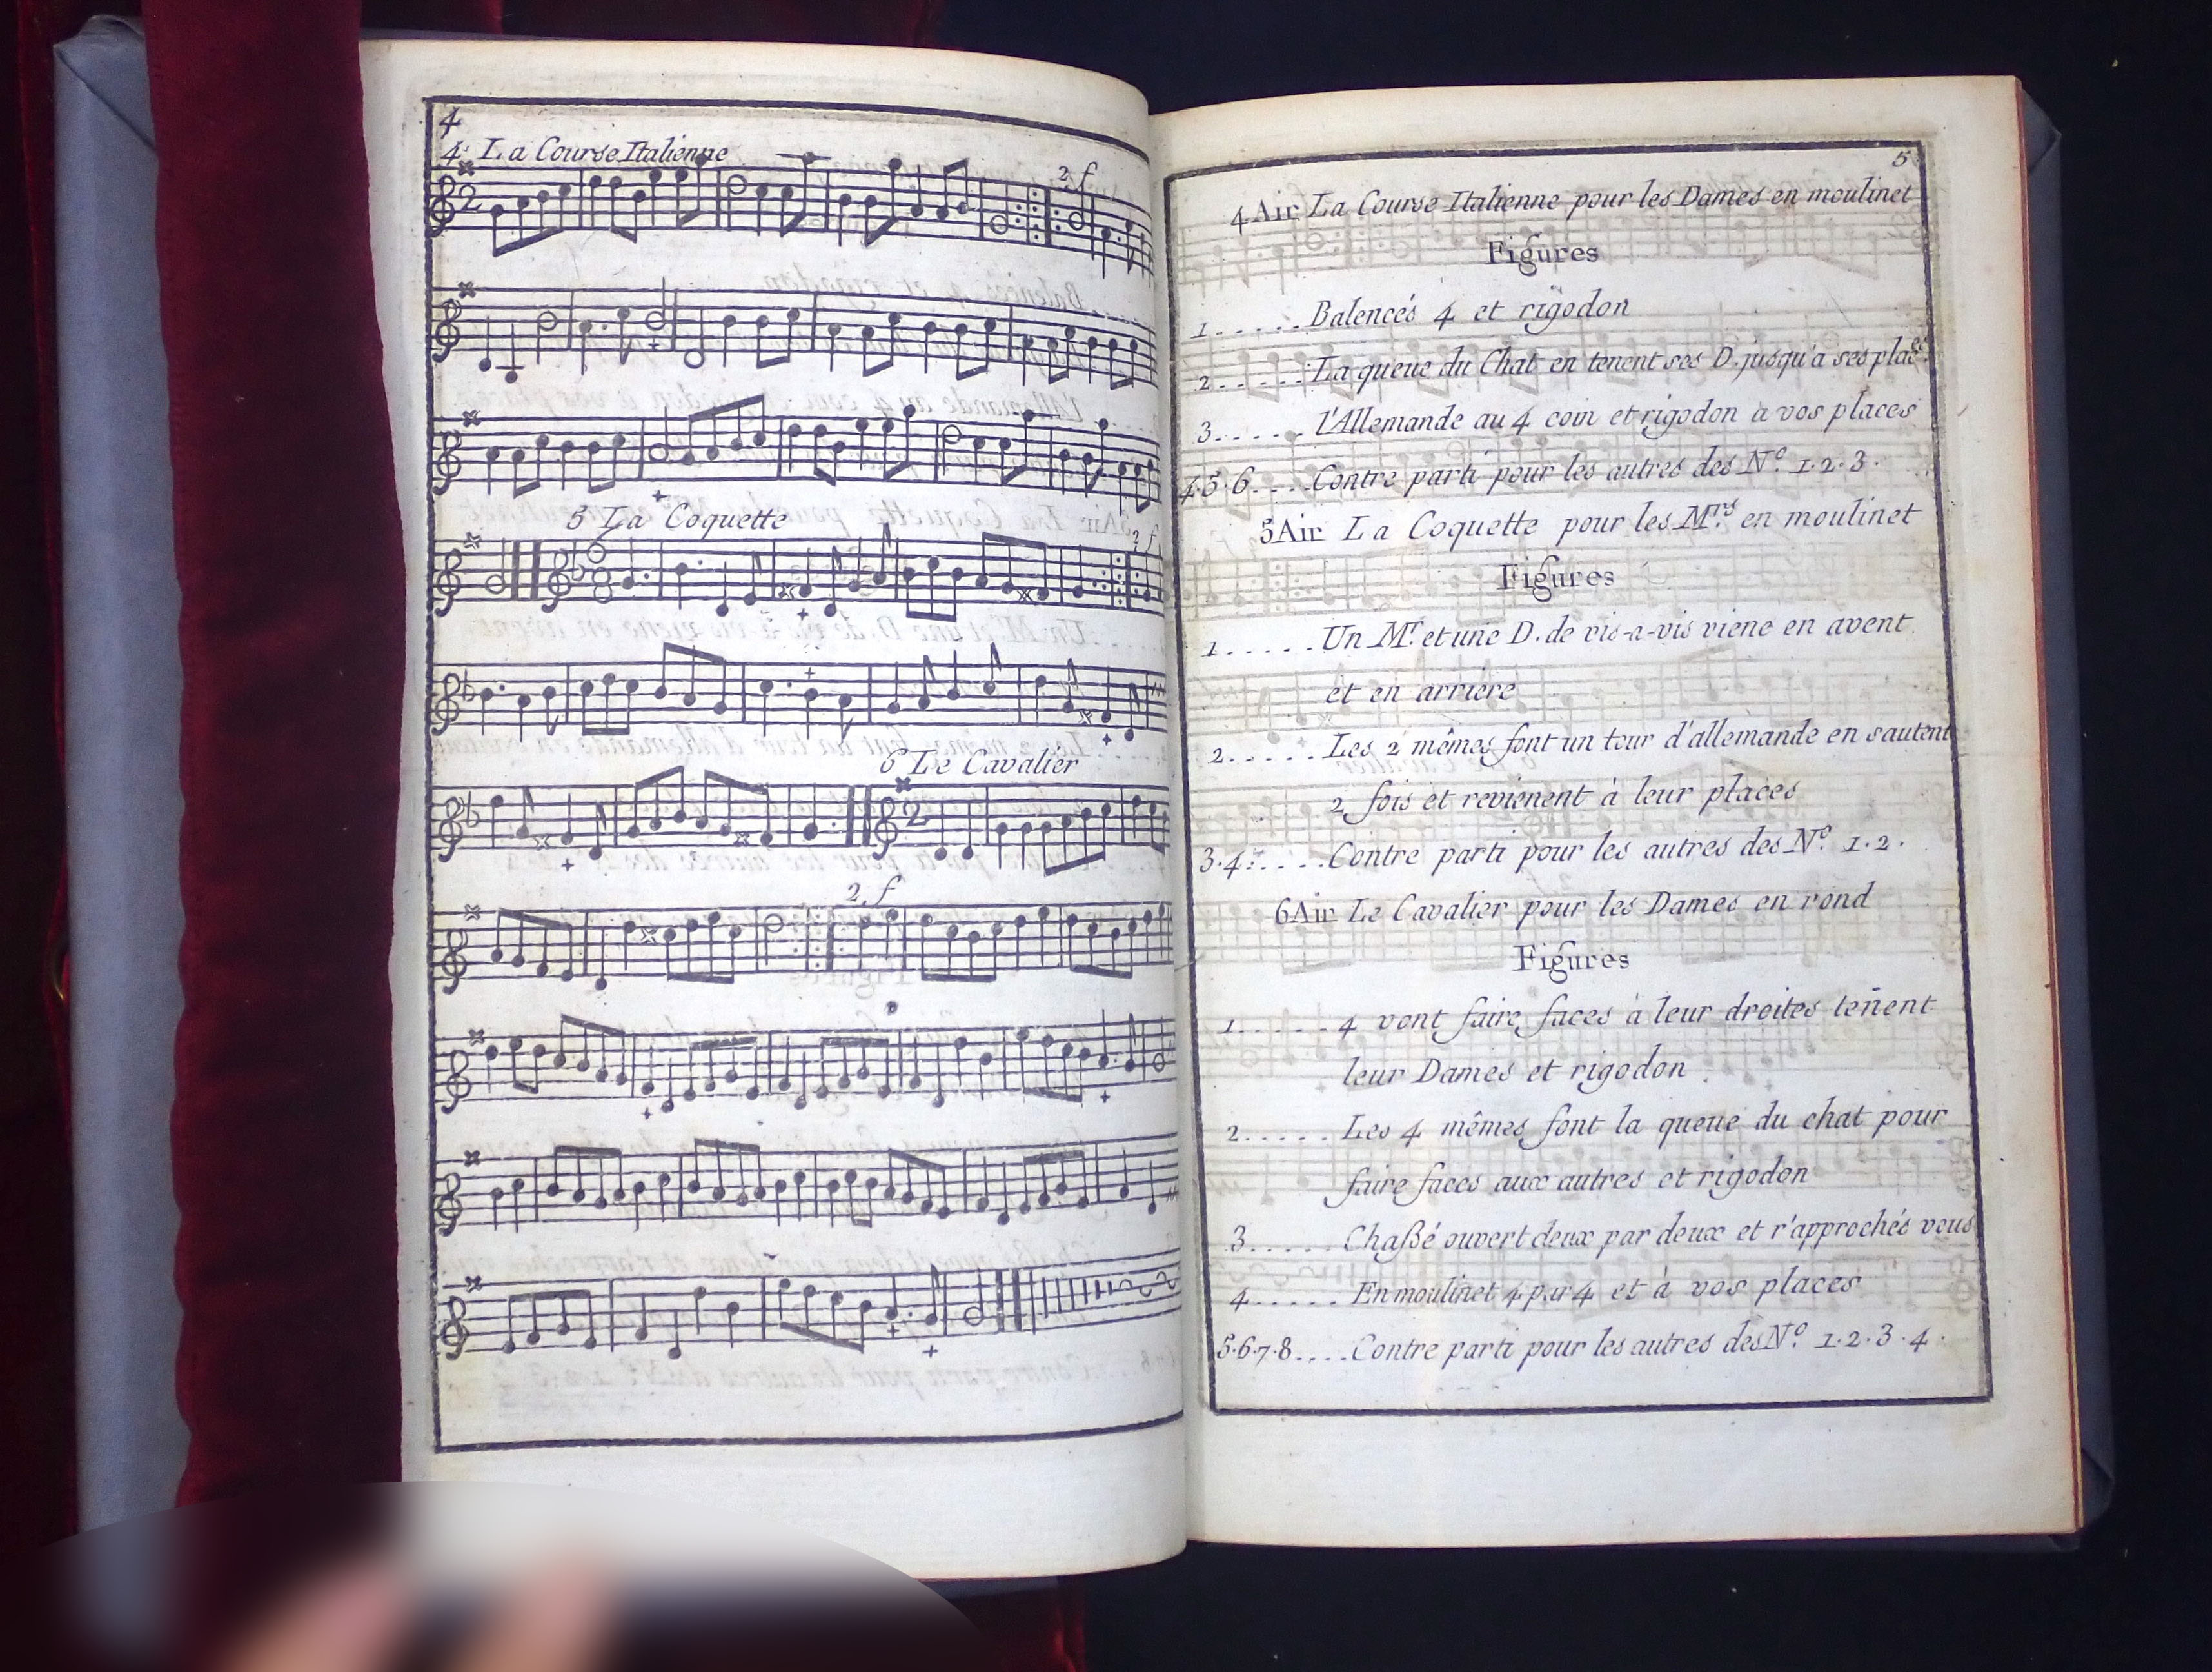 4
4. La Course Italienne
2 f
5 La Coquette
2 f
6 Le Cavalier
2 f
5
4 Air La Course Italienne pour les Dames en moulinet
Figures
1......Balencés 4 et rigodon
2......La queue du Chat en tenent ses D. jusqu'a ses places
3......l'Allemande au 4 coin et rigodon a vos places
4.5.6....Contre parti pour les autres des No. 1.2.3.
5 Air La Coquette pour les Mrs. en moulinet
Figures
1......Un Mr. et une D. de vis-a-vis viene en avent
et en arriere
2......Les 2 mêmes font un tour d'allemande en sautent
2 fois et revienent à leur places
3.4.....Contre parti pour les autres des No. 1.2.
6 Air Le Cavalier pour les Dames en rond
Figures
1......4 vont faire faces a leur droites teñent
leur Dames et rigodon
2......Les 4 mêmes font la queue du chat pour
faire faces aux autres et rigodon
3......Chaßé ouvert deux par deux et r'approchés vous
4......En moulinet 4 par 4 et à vos places
5.6.7.8....Contre parti pour les autres des No. 1.2.3.4.